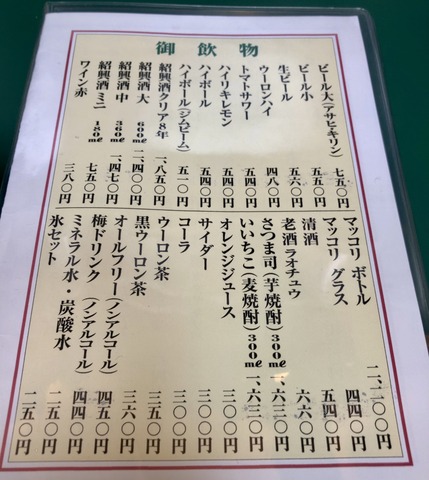 御飲物
ビール大(アサヒ・キリン) 七五〇円
ビール小 五五〇円
生ビール 五六〇円
ウーロンハイ 四八〇円
トマトサワー 五四〇円
ハイリキレモン 五四〇円
ハイボール 五四〇円
ハイボール(ジムビーム) 五一〇円
紹興酒クリア8年 一、八五〇円
紹興酒 大 600㎖ 二、四〇〇円
紹興酒 中 360㎖ 一、四七〇円
紹興酒 ミニ 180㎖ 七五〇円
ワイン赤 三八〇円
マッコリ ボトル 二、二〇〇円
マッコリ グラス 四四〇円
清酒 五四〇円
老酒 ラオチュウ 六六〇円
さつま司(芋焼酎)300㎖ 一、六三〇円
いいちこ(麦焼酎)300㎖ 一、六三〇円
オレンジジュース 三〇〇円
サイダー 三〇〇円
コーラ 三〇〇円
ウーロン茶 三五〇円
黒ウーロン茶 三六〇円
オールフリー(ノンアルコール) 四五〇円
梅ドリンク(ノンアルコール) 四四〇円
ミネラル水・炭酸水 二五〇円
氷セット 二五〇円